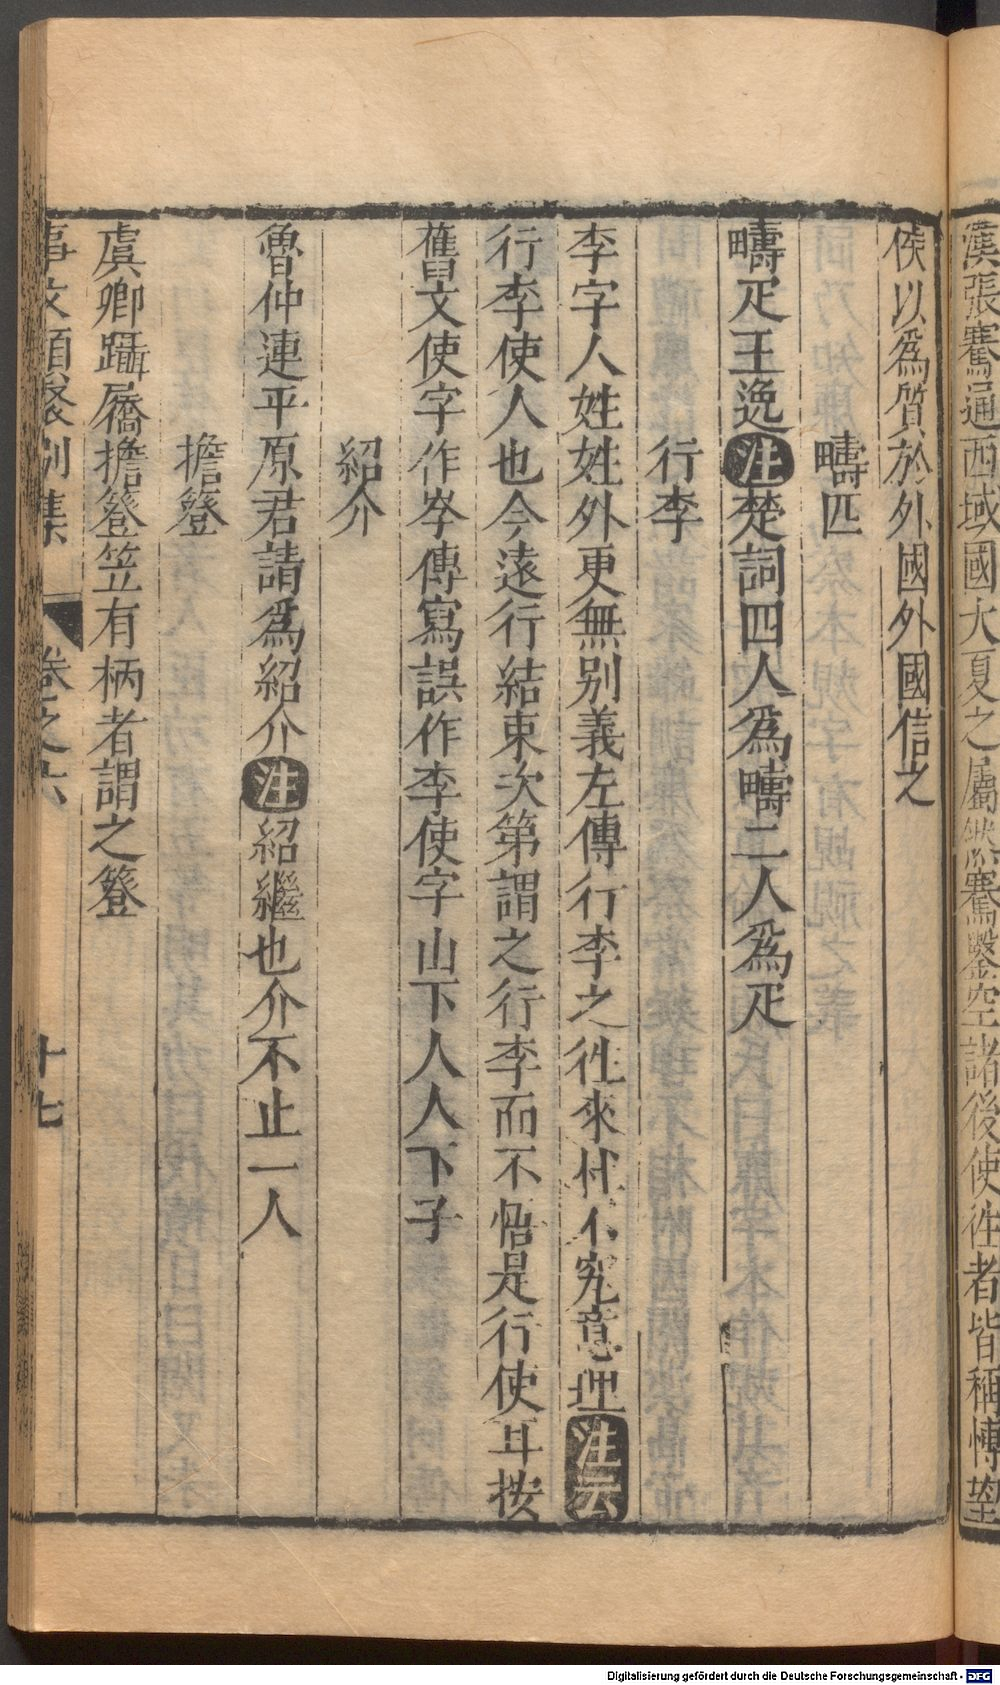 漢張騫通西域國大夏之屬然騫鑿空諸後使徃者皆稱愽望
侯以爲質於外國外國信之
疇匹
疇疋王逸注楚詞四人爲疇二人爲疋
行李
李字人姓姓外更無别義左傳行李之徃來杜不究意理注云
行李使人也今遠行結束次第謂之行李而不悟是行使耳按
舊文使字作李傳寫誤作李使字山下人人下子
紹介
魯仲連平原君請爲紹介注紹繼也介不止一人
擔簦
虞卿躡屩擔簦笠有柄者謂之簦
事文類聚别集 卷之六 十七
Digitalisierung gefördert durch die Deutsche Forschungsgemeinschaft - DFG